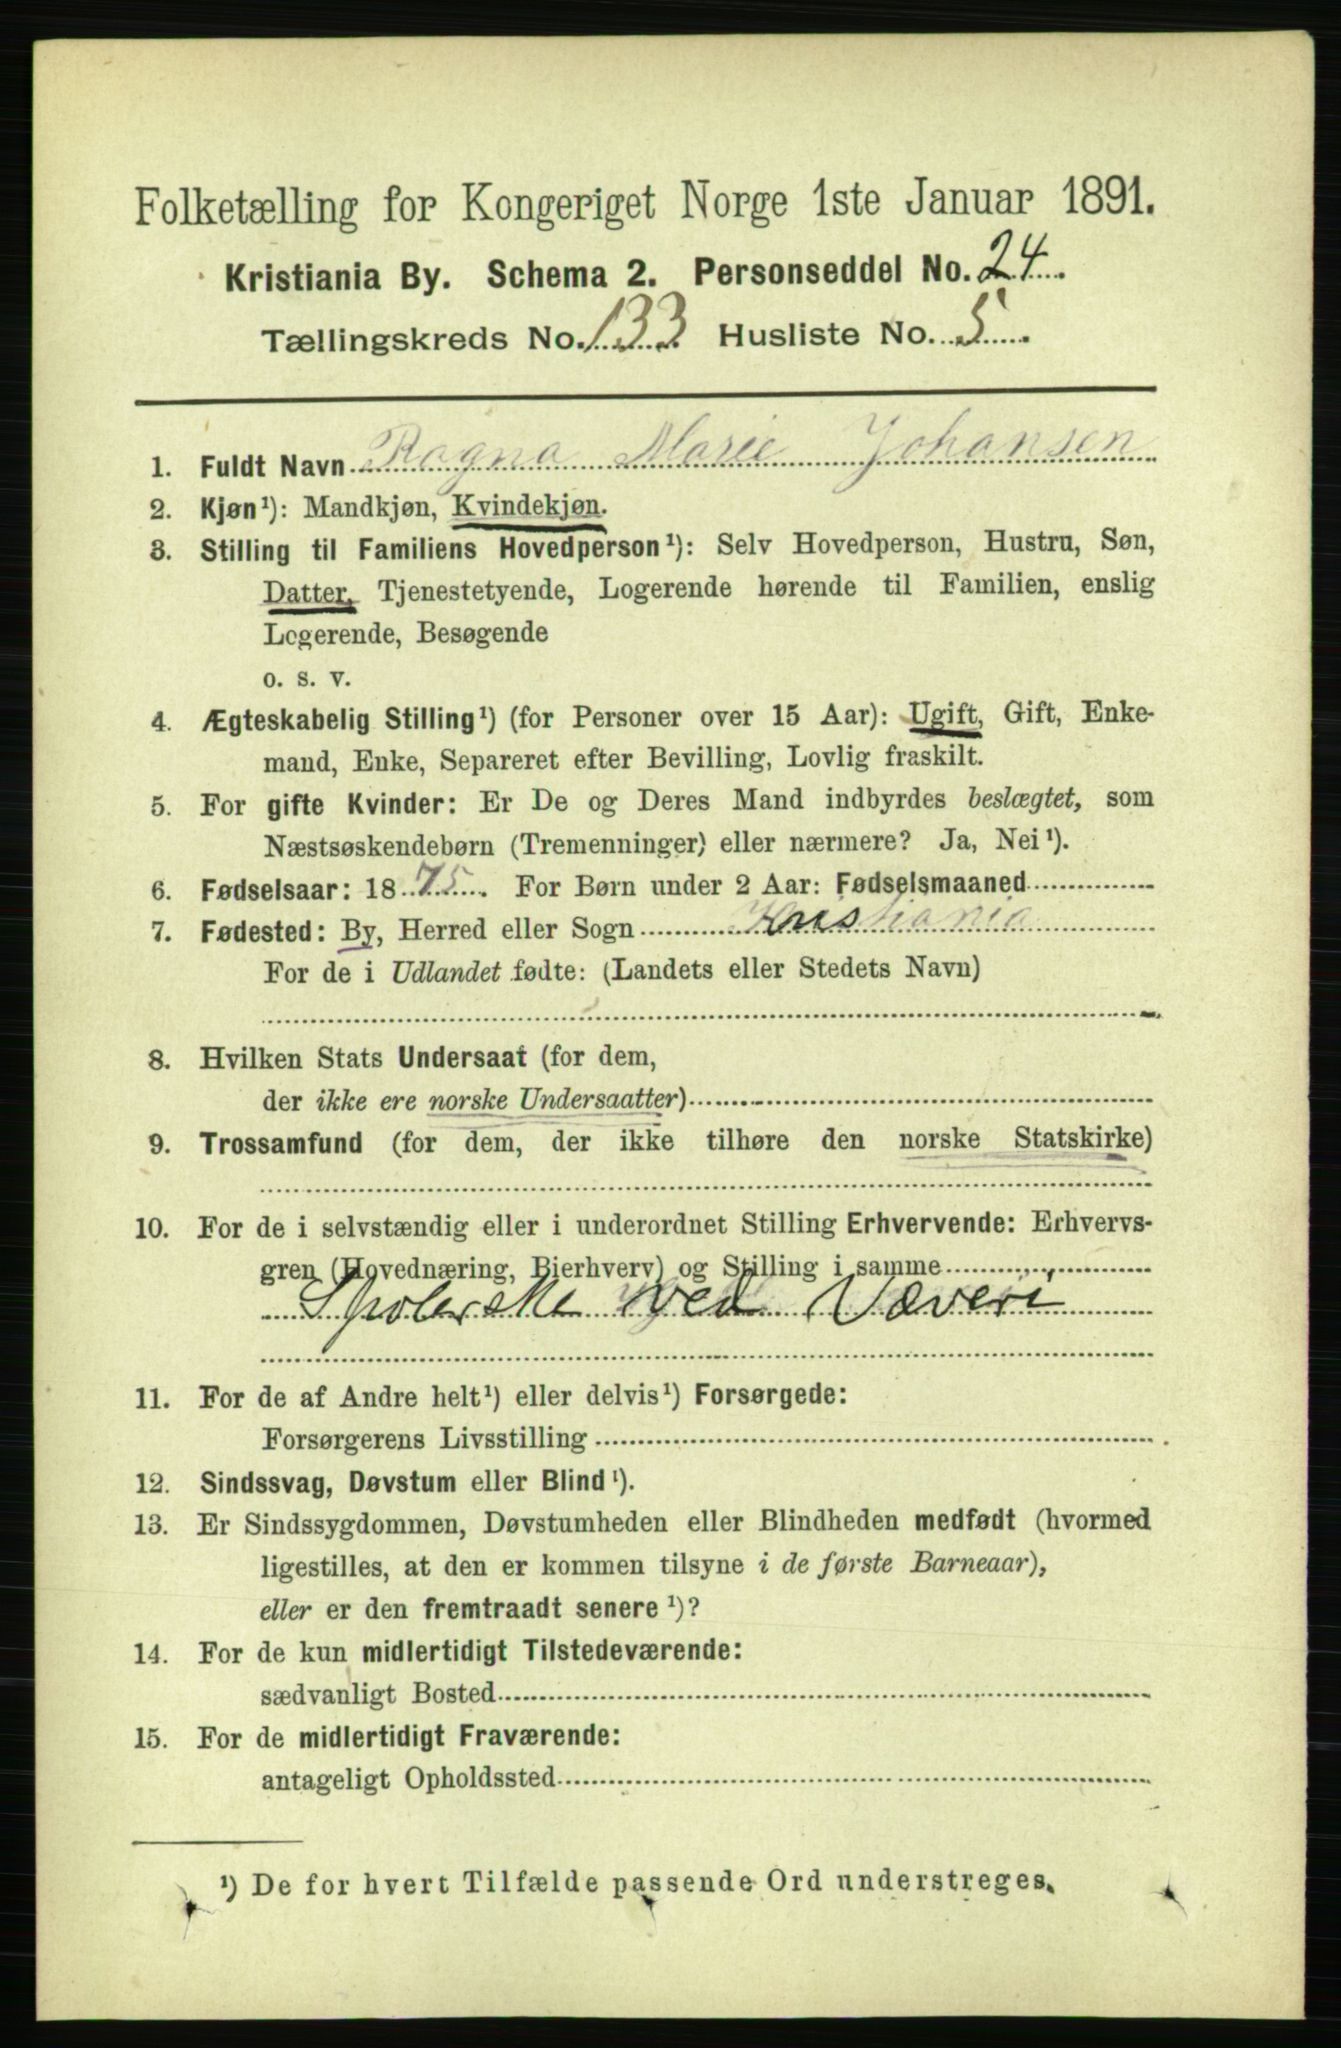 Folketælling for Kongeriget Norge 1ste Januar 1891.
Kristiania By. Schema 2. Personseddel No. 24
Tællingskreds No. 133 Husliste No. 5
1. Fuldt Navn Ragna Marie Johansen
2. Kjøn¹): Mandkjøn, Kvindekjøn.
3. Stilling til Familiens Hovedperson¹): Selv Hovedperson, Hustru, Søn,
Datter, Tjenestetyende, Logerende hørende til Familien, enslig
Logerende, Besøgende
o. s. v.
4. Ægteskabelig Stilling¹) (for Personer over 15 Aar): Ugift, Gift, Enke-
mand, Enke, Separeret efter Bevilling, Lovlig fraskilt.
5. For gifte Kvinder: Er De og Deres Mand indbyrdes beslægtet, som
Næstsøskendebørn (Tremenninger) eller nærmere? Ja, Nei¹).
6. Fødselsaar: 1875. For Børn under 2 Aar: Fødselsmaaned
7. Fødested: By, Herred eller Sogn Kristiania
For de i Udlandet fødte: (Landets eller Stedets Navn)
8. Hvilken Stats Undersaat (for dem,
der ikke ere norske Undersaatter)
9. Trossamfund (for dem, der ikke tilhøre den norske Statskirke)
10. For de i selvstændig eller i underordnet Stilling Erhvervende: Erhvervs-
gren (Hovednæring, Bierhverv) og Stilling i samme
Spolerske ved Væveri
11. For de af Andre helt¹) eller delvis¹) Forsørgede:
Forsørgerens Livsstilling
12. Sindssvag, Døvstum eller Blind¹).
13. Er Sindssygdommen, Døvstumheden eller Blindheden medfødt (hvormed
ligestilles, at den er kommen tilsyne i de første Barneaar),
eller er den fremtraadt senere¹)?
14. For de kun midlertidigt Tilstedeværende:
sædvanligt Bosted
15. For de midlertidigt Fraværende:
antageligt Opholdssted
¹) De for hvert Tilfælde passende Ord understreges.